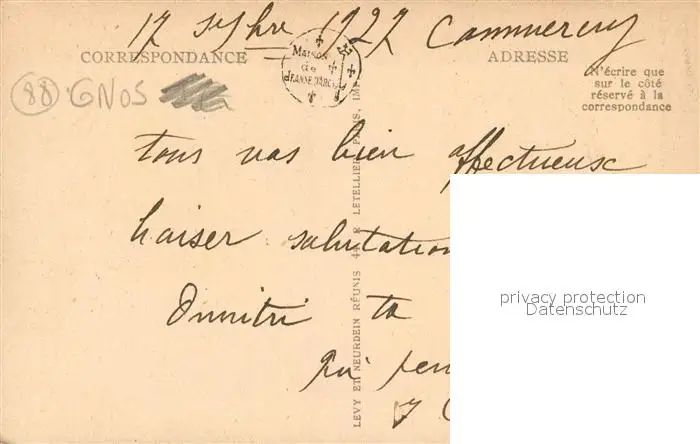 12 1922 Commercy
CORRESPONDANCE
MAISON
de
JEANNE D'ARC
ADRESSE
N'écrire que
sur le côté
réservé à la
correspondance
88 GNOS
tous bien affectueux
baiser salutation
Dimitri ta
qui
LEVY ET NEURDEIN RÉUNIS 44 R LETELLIER, PARIS, IMP
privacy protection
Datenschutz